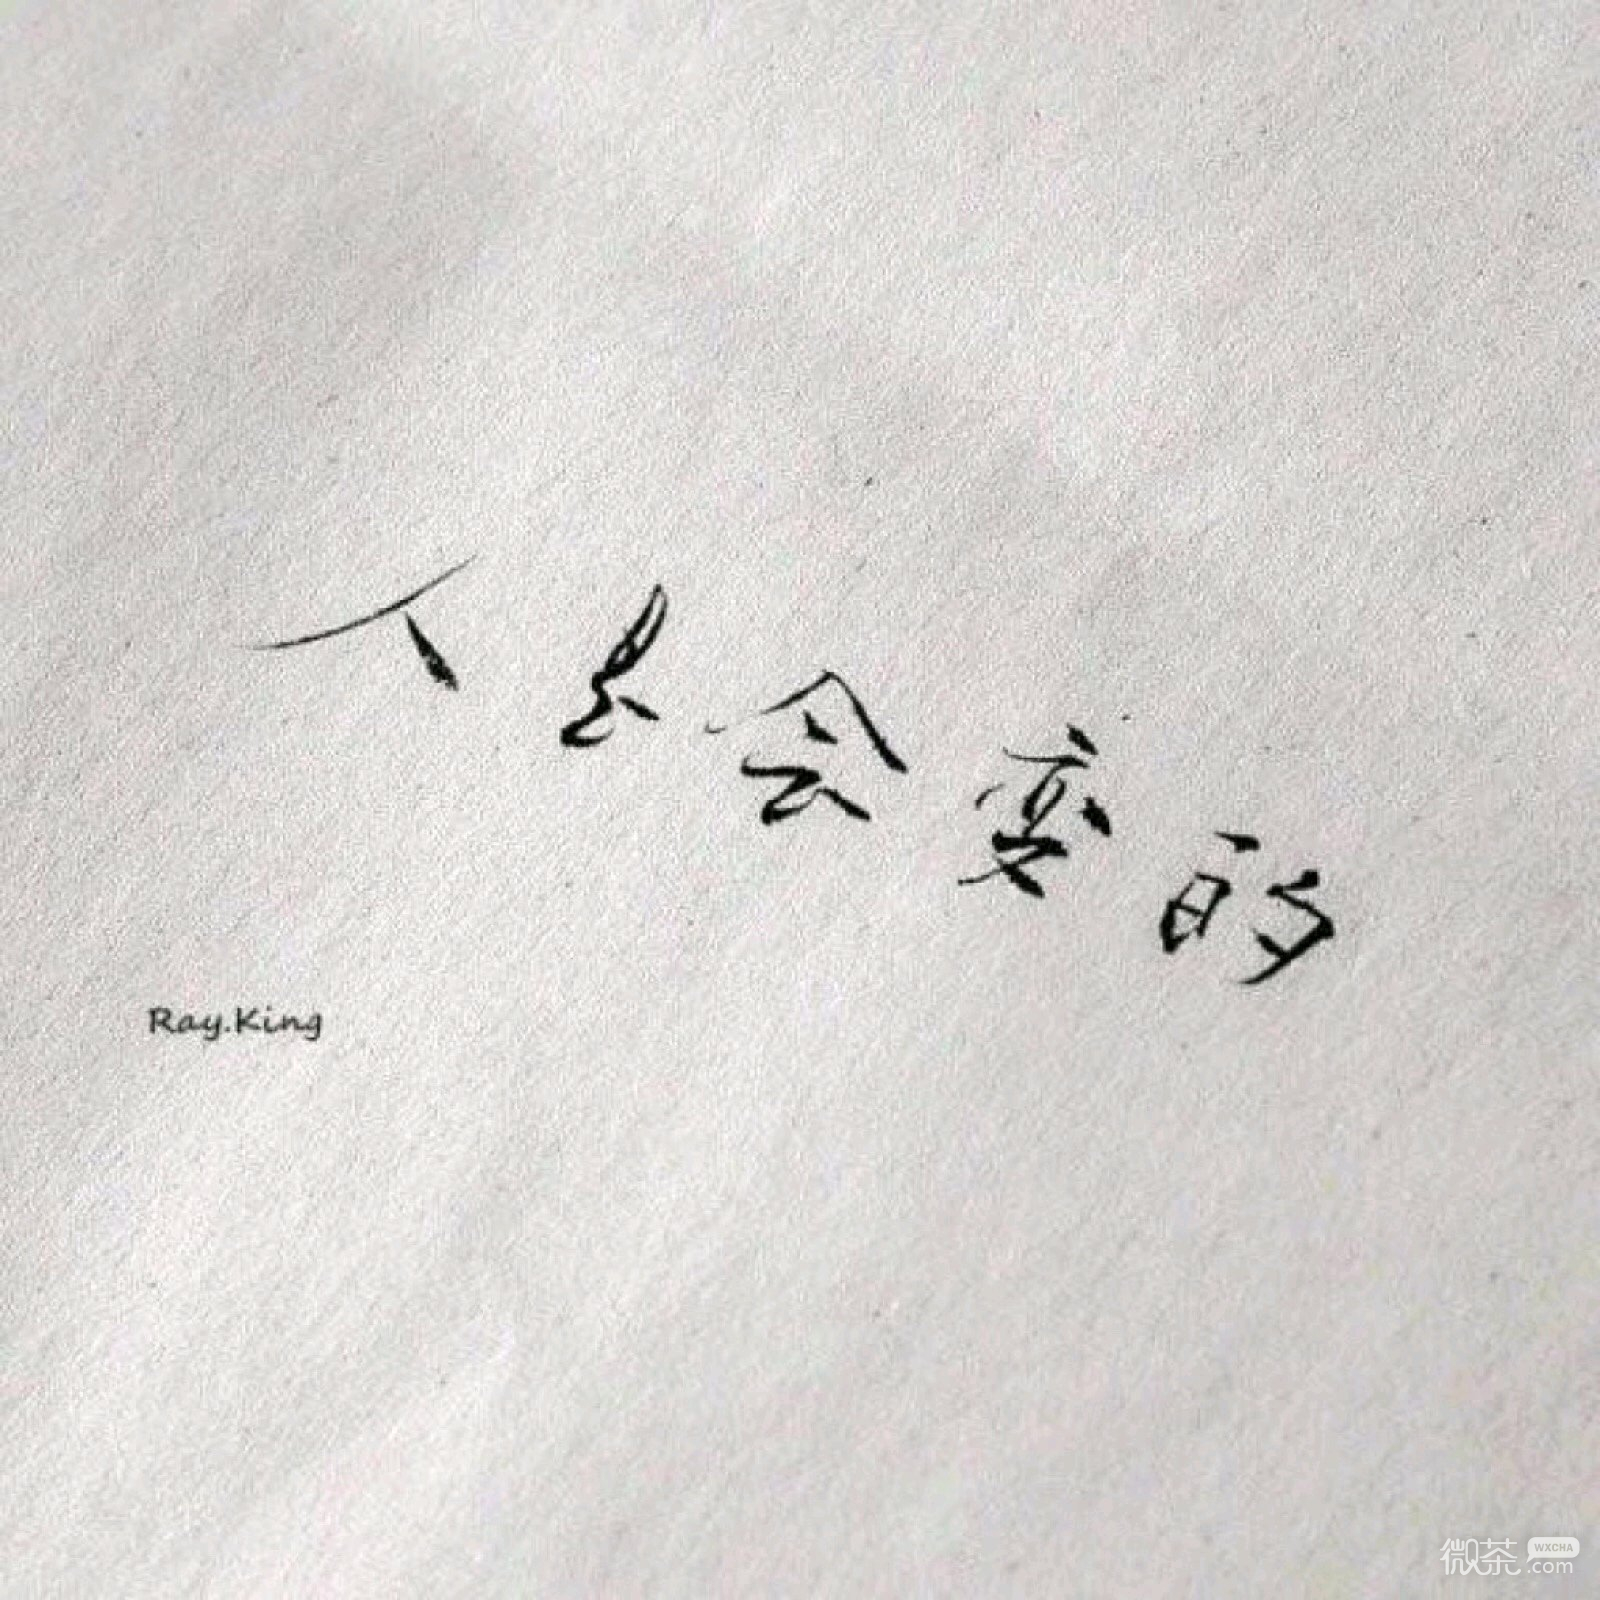 人是会变的
Ray.King
微茶 WXCHA .com